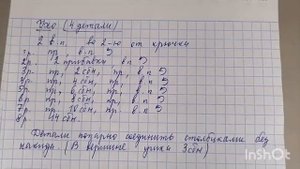 Ухо (4 детали)
2 в.п. во 2-ю от крючка
1р. пр,
2р. 2 прибавки в.п
3р. пр, 2 сбн, пр, в.п
4р. пр, 4 сбн, пр, в.п
5р. пр, 6 сбн, пр, в.п
6р. пр, 8 сбн, пр, в.п
7р. пр, 10 сбн, пр. в.п
8р. 14 сбн.
Детали попарно соединить столбиками без
накида. (В вершине ушка 3 сбн)
InShOt